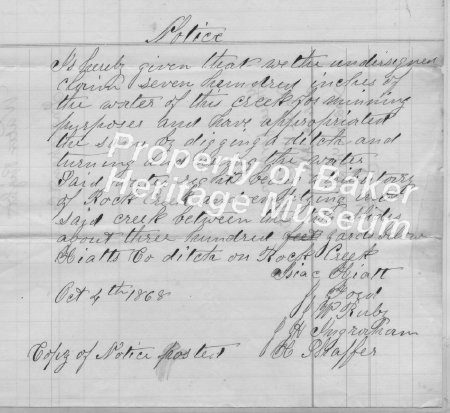 Notice
Is hereby given that we the undersigned
claim seven hundred inches of
the water of this creek for minning
purposes and have appropriated
the same by digging a ditch and
turning the water
Said water right being
of Rock Creek
said creek between the
about three hundred feet yards below
Hiatts Co ditch on Rock Creek
Isiac Hiatt
Oct 4th 1868
J Ford
J W Ruby
J H Ingraham
H Shaffer
Copy of Notice posted
Property of Baker
Heritage Museum